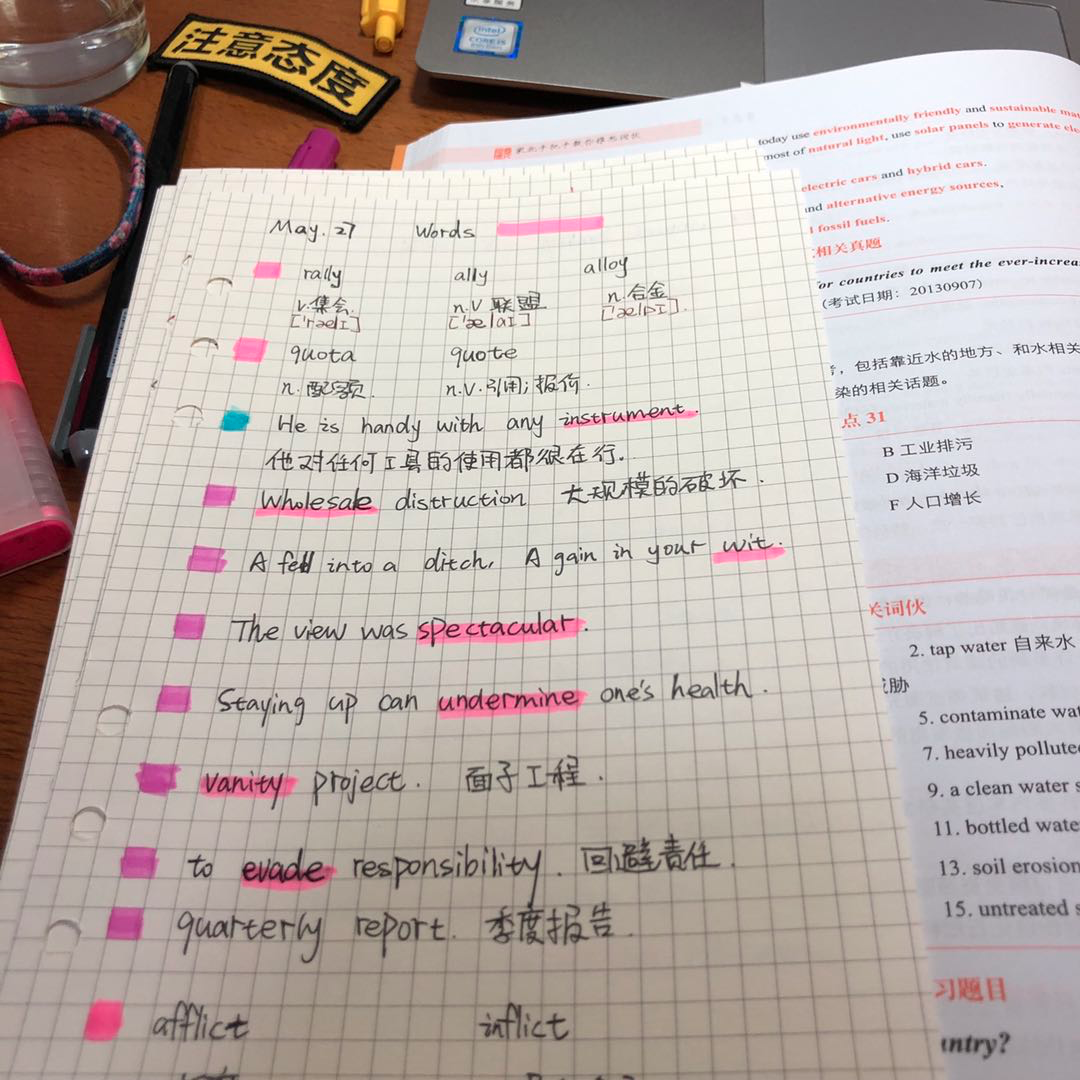 享服务
intel
CORE i5
注意态度
家长手把手教你雅思词伙
today use environmentally friendly and sustainable
most of natural light, use solar panels to generate
electric cars and hybrid cars.
and alternative energy sources,
fossil fuels.
相关真题
for countries to meet the
(考试日期：20130907)
，包括靠近水的地方、和水相关
染的相关话题。
点 31
B 工业排污
D 海洋垃圾
F 人口增长
关词伙
2. tap water 自来水
威胁
5. contaminate
7. heavily
9. a clean water
11. bottled
13. soil erosion
15. untreated
习题目
May. 27 Words
rally ally alloy
v.集会. n.v 联盟 n.合金
['rælɪ] ['ælaɪ] ['ælɒɪ].
quota quote
n.配额. n.v.引用;报价.
He is handy with any instrument.
他对任何工具的使用都很在行.
Wholesale distruction 大规模的破坏.
A fell into a ditch, A gain in your wit.
The view was spectacular.
Staying up can undermine one's health.
vanity project. 面子工程.
to evade responsibility. 回避责任.
quarterly report. 季度报告.
afflict inflict